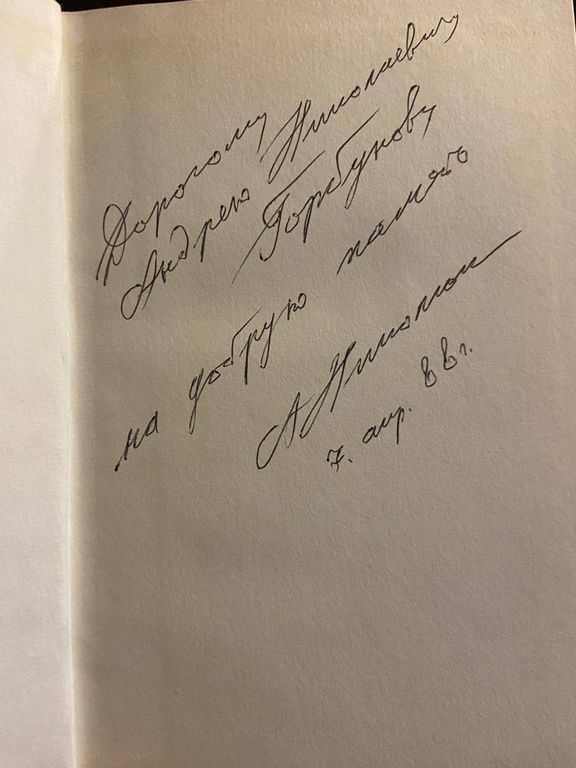 Дорогому
Андрею Николаевичу
Горбунову
на добрую память
7. апр. 88 г.